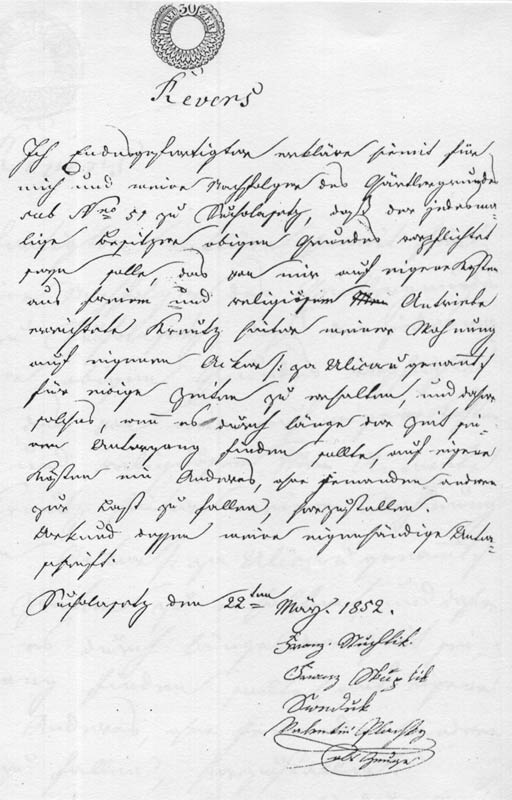 30
Revers
Ich Endesgefertigter erkläre hiemit für
mich und meine Nachfolger des Gärtlergrundes
sub Nro 51 zu Sucholasetz, daß der jedesma-
lige Besitzer obigen Grundes verpflichtet
seyn solle, das von mir auf eigene Kosten
aus freiem und religiösem Antriebe
errichtete Kreutz hinter meiner Wohnung
auf eigenem Acker /: za Ulicau genannt :/
für ewige Zeiten zu erhalten, und daher
solches, wenn es durch länge der Zeit sei-
nen Untergang finden sollte, auf eigene
Kosten ein Anderes, ohne jemanden andern
zur Last zu fallen herzustellen.
Urkund dessen meine eigenhändige Unter-
schrift.
Sucholasetz den 22ten März 1852.
Franz
Franz
Valentin
als Zeuge